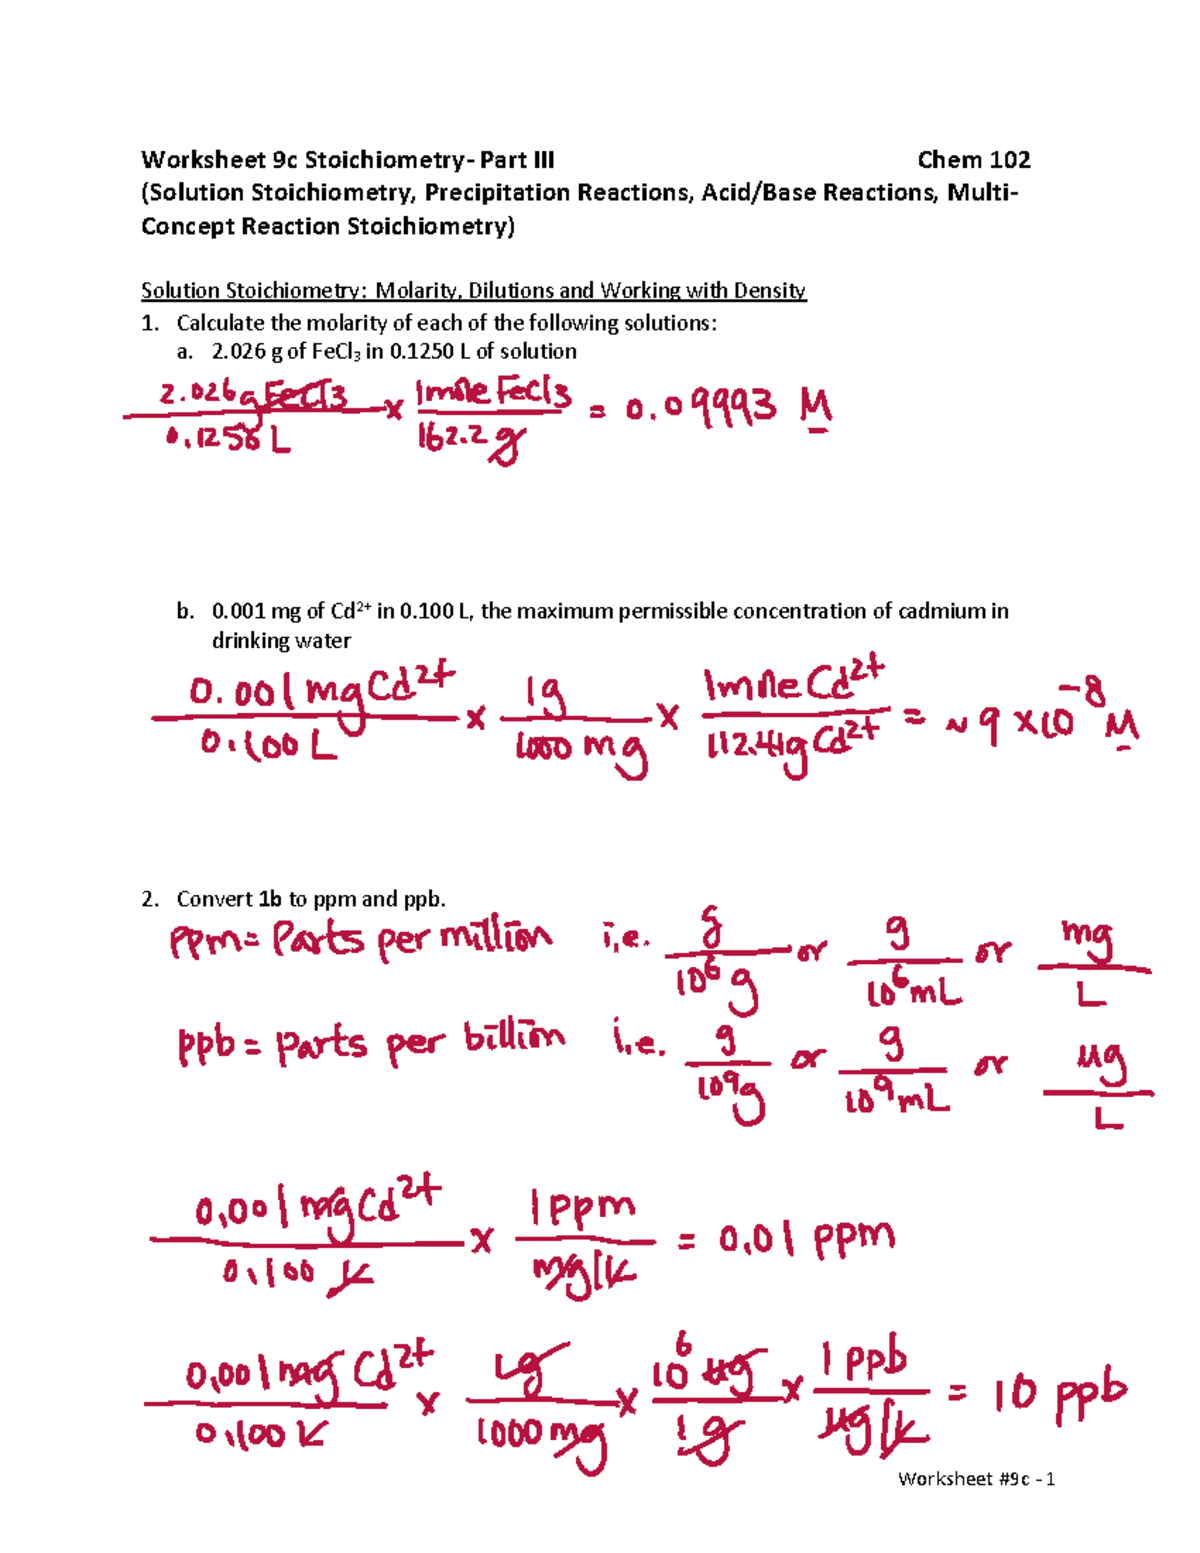 Worksheet 9c Stoichiometry- Part III Chem 102
(Solution Stoichiometry, Precipitation Reactions, Acid/Base Reactions, Multi-
Concept Reaction Stoichiometry)
Solution Stoichiometry: Molarity, Dilutions and Working with Density
1. Calculate the molarity of each of the following solutions:
a. 2.026 g of FeCl₃ in 0.1250 L of solution
2.026g FeCl3 / 0.1250 L x 1mole FeCl3 / 162.2 g = 0.09993 M
b. 0.001 mg of Cd²⁺ in 0.100 L, the maximum permissible concentration of cadmium in
drinking water
0.001 mg Cd²⁺ / 0.100 L x 1g / 1000 mg x 1mole Cd²⁺ / 112.41g Cd²⁺ = ~ 9 x 10⁻⁸ M
2. Convert 1b to ppm and ppb.
ppm = Parts per million i.e. g / 10⁶ g or g / 10⁶ mL or mg / L
ppb = parts per billion i.e. g / 10⁹ g or g / 10⁹ mL or µg / L
0.001 mg Cd²⁺ / 0.100 L x 1 ppm / mg/L = 0.01 ppm
0.001 mg Cd²⁺ / 0.100 L x 1g / 1000 mg x 10⁶ µg / 1g x 1 ppb / µg/L = 10 ppb
Worksheet #9c - 1